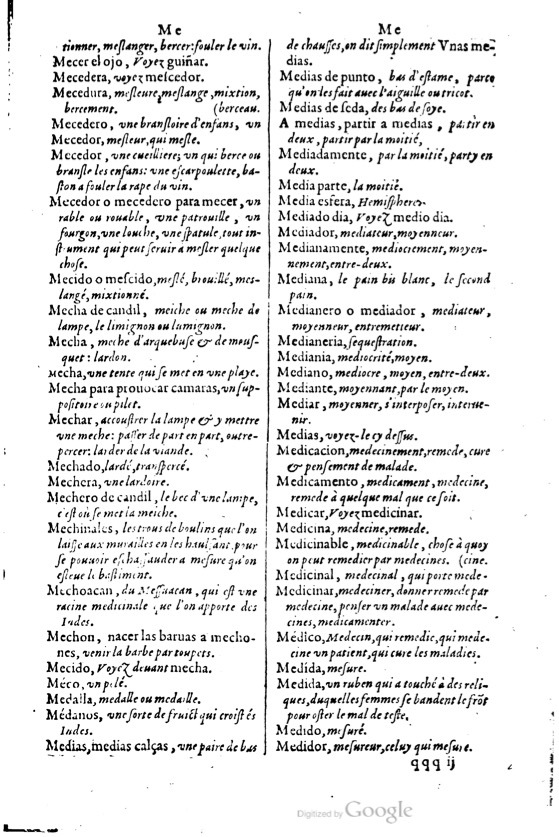 Me
tionner, meſlanger, bercer: fouler le vin.
Mecer el ojo, Voyez guiñar.
Mecedera, voyez meſcedor.
Mecedura, meſleure, meſlange, mixtion,
bercement. (berceau.
Mecedero, vne branſloire d'enfans, vn
Mecedor, meſleur, qui meſle.
Mecedor, vne cueilliere; vn qui berce ou
branſle les enfans: vne eſcarpoulette, ba-
ſton a fouler la rape du vin.
Mecedor o mecedero para mecer, vn
rable ou rouable, vne patrouille, vn
fourgon, vne louche, vne ſpatule, tout in-
ſtrument qui peut ſeruir a meſler quelque
choſe.
Mecido o meſcido, meſlé, brouillé, meſ-
langé, mixtionné.
Mecha de candil, meiche ou meche de
lampe, le limignon ou lumignon.
Mecha, meche d'arquebuſe & de mouſ-
quet: lardon.
Mecha, vne tente qui ſe met en vne playe.
Mecha para prouocar camaras, vn ſup-
poſitoire ou pilet.
Mechar, accouſtrer la lampe & y mettre
vne meche: paſſer de part en part, outre-
percer: larder de la viande.
Mechado, lardé, tranſpercé.
Mechera, vne lardoire.
Mechero de candil, le bec d'vne lampe,
c'eſt où ſe met la meiche.
Mechinales, les trous de boulins que l'on
laiſſe aux murailles en les hauſſant, pour
ſe pouuoir eſchaffauder a meſure qu'on
eſleue le baſtiment.
Mechoacan, du Meſſuacan, qui eſt vne
racine medicinale que l'on apporte des
Indes.
Mechon, nacer las baruas a mecho-
nes, venir la barbe par toupets.
Mecido, Voyez deuant mecha.
Méco, vn pelé.
Medalla, medalle ou medaille.
Médanos, vne ſorte de fruict qui croiſt és
Indes.
Medias, medias calças, vne paire de bas
Me
de chauſſes, on dit ſimplement Vnas me-
dias.
Medias de punto, bas d'eſtame, parce
qu'on les fait auec l'aiguille ou tricot.
Medias de ſeda, des bas de ſoye.
A medias, partir a medias, partir en
deux, partir par la moitié,
Mediadamente, par la moitié, party en
deux.
Media parte, la moitié.
Media esfera, Hemiſphere.
Mediado dia, Voyez medio dia.
Mediador, mediateur, moyenneur.
Medianamente, mediocrement, moyen-
nement, entre-deux.
Mediana, le pain bis blanc, le ſecond
pain.
Medianero o mediador, mediateur,
moyenneur, entremetteur.
Medianeria, ſequeſtration.
Mediania, mediocrité, moyen.
Mediano, mediocre, moyen, entre-deux.
Mediante, moyennant, par le moyen.
Mediar, moyenner, s'interpoſer, interue-
nir.
Medias, voyez-le cy deſſus.
Medicacion, medecinement, remede, cure
& penſement de malade.
Medicamento, medicament, medecine,
remede à quelque mal que ce ſoit.
Medicar, Voyez medicinar.
Medicina, medecine, remede.
Medicinable, medicinable, choſe à quoy
on peut remedier par medecines. (cine.
Medicinal, medecinal, qui porte mede-
Medicinar, mediciner, donner remede par
medecine, penſer vn malade auec mede-
cines, medicamenter.
Médico, Medecin, qui remedie, qui mede-
cine vn patient, qui cure les maladies.
Medida, meſure.
Medida, vn ruben qui a touché à des reli-
ques, duquel les femmes ſe bandent le frõt
pour oſter le mal de teſte.
Medido, meſuré.
Medidor, meſureur, celuy qui meſure.
qqq ij
Digitized by Google